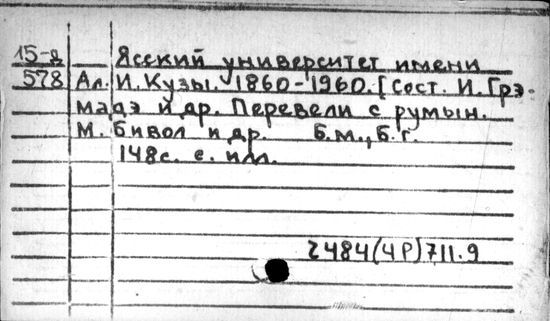 15-д Ясский университет имени
578 Ал. И. Кузы. 1860-1960. [Сост. И. Грэ-
мадэ и др. Перевели с румын.
М. Бивол и др. Б.м., Б.г.
148с. с. илл.
2484(4Р)711.9